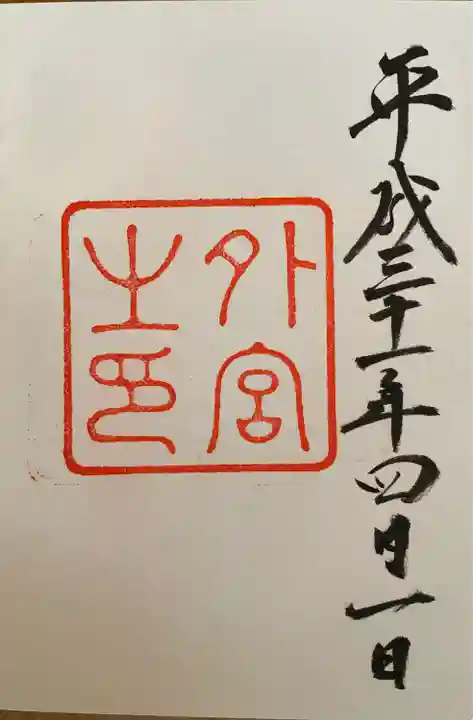 平成三十一年四月一日
外宮
之印